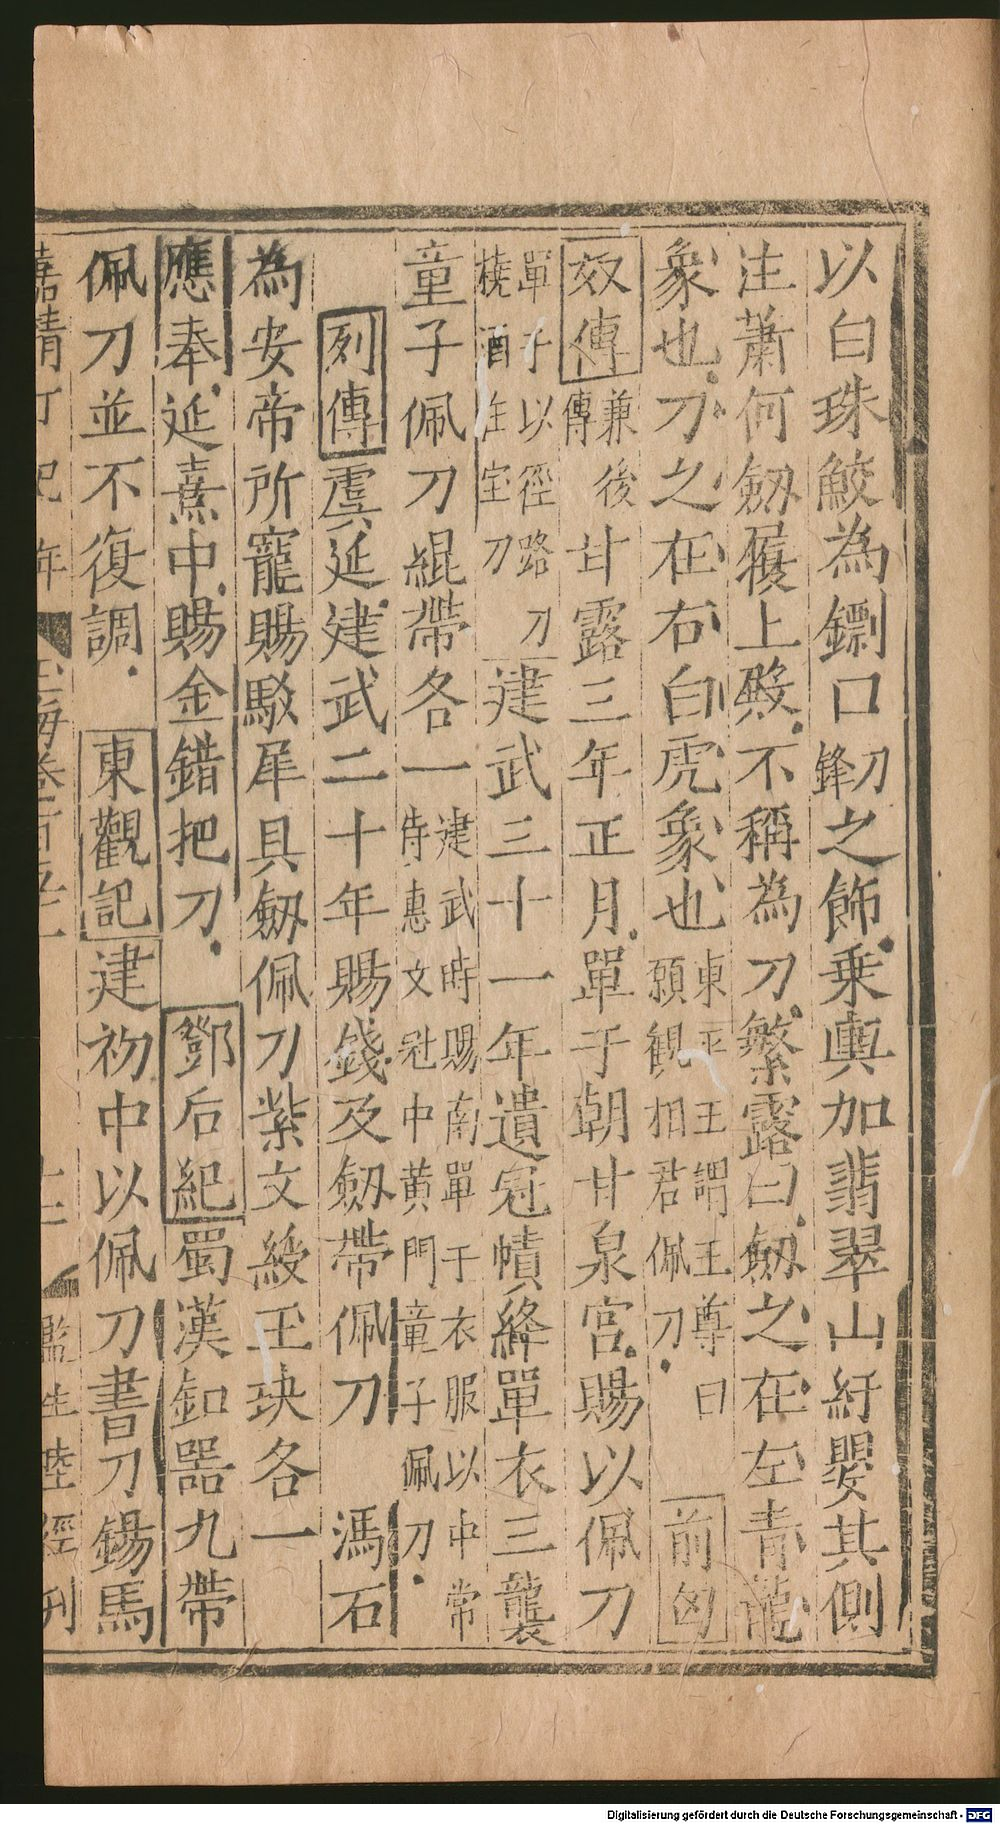 以白珠鮫為鏢口鋒刃之飾乗輿加翡翠山紆嬰其側
注蕭何劔履上殿不稱為刀繁露曰劔之在左青龍
象也刀之在右白虎象也東平王謂王尊曰願觀相君佩刀前匈
奴傳兼後傳甘露三年正月單于朝甘泉宮賜以佩刀
單于以徑路刀撓酒注宝刀建武三十一年遺冠幘絳單衣三襲
童子佩刀緄帶各一建武時賜南單于衣服以中常侍惠文冠中黄門童子佩刀
列傳虞延建武二十年賜錢及劔帶佩刀馮石
為安帝所寵賜駮犀具劔佩刀紫文綬玉玦各一
應奉延熹中賜金錯把刀鄧后紀蜀漢釦器九帶
佩刀並不復調東觀記建初中以佩刀書刀錫馬
嘉靖丁巳年 玉海卷一百五十一 十二 監生陸經刋
Digitalisierung gefördert durch die Deutsche Forschungsgemeinschaft - DFG